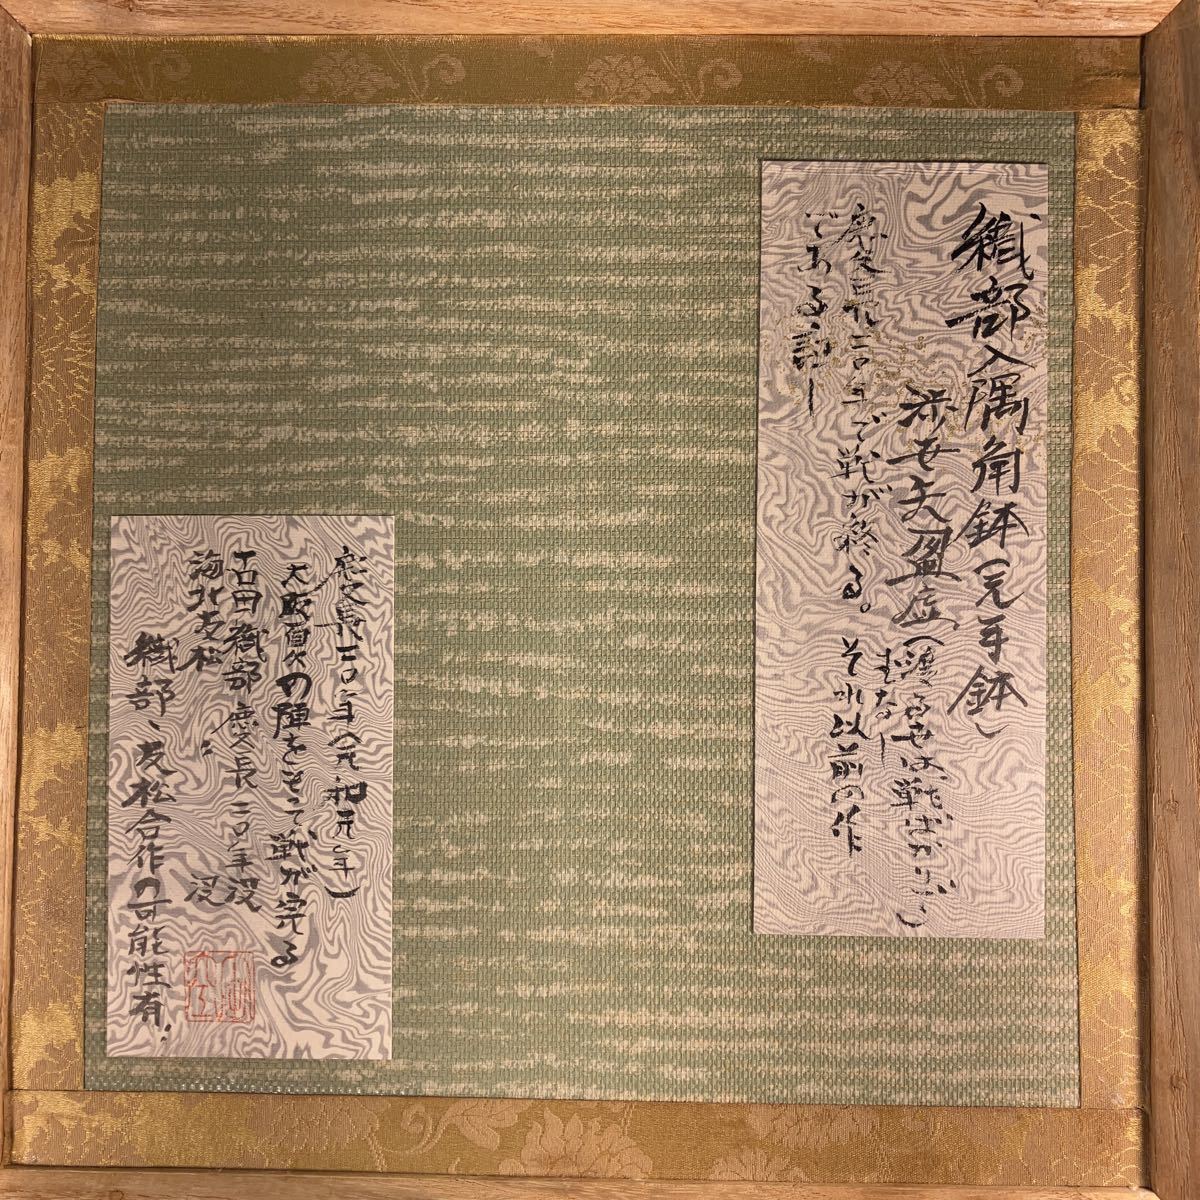 織部入隅角鉢（元手鉢）
渉世矢盈虚（渡る世は戦ばかり
まなし
慶長二〇年で戦が終る。それ以前の作
である証し
慶長二〇年（元和元年）
大阪夏の陣をもって戦が完る
古田織部 慶長二〇年没
海北友松 〃 没
織部、友松合作の可能性有。